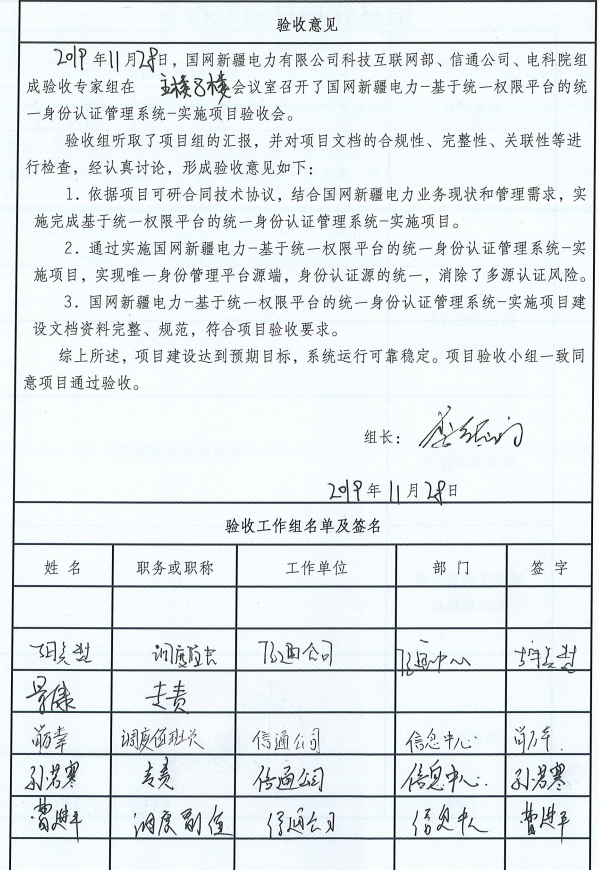 验收意见
2019年11月28日，国网新疆电力有限公司科技互联网部、信通公司、电科院组
成验收专家组在 主楼8楼会议室召开了国网新疆电力-基于统一权限平台的统
一身份认证管理系统-实施项目验收会。
验收组听取了项目组的汇报，并对项目文档的合规性、完整性、关联性等进
行检查，经认真讨论，形成验收意见如下：
1．依据项目可研合同技术协议，结合国网新疆电力业务现状和管理需求，实
施完成基于统一权限平台的统一身份认证管理系统-实施项目。
2．通过实施国网新疆电力-基于统一权限平台的统一身份认证管理系统-实
施项目，实现唯一身份管理平台源端，身份认证源的统一，消除了多源认证风险。
3．国网新疆电力-基于统一权限平台的统一身份认证管理系统-实施项目建
设文档资料完整、规范，符合项目验收要求。
综上所述，项目建设达到预期目标，系统运行可靠稳定。项目验收小组一致同
意项目通过验收。
组长：
2019年11月28日
验收工作组名单及签名
姓名 职务或职称 工作单位 部门 签字
调度值长 信通公司
专责
调度值班员 信通公司 信息中心
孙若寒 专责 信通公司 信息中心 孙若寒
曹进平 调度副值 信通公司 信息中心 曹进平